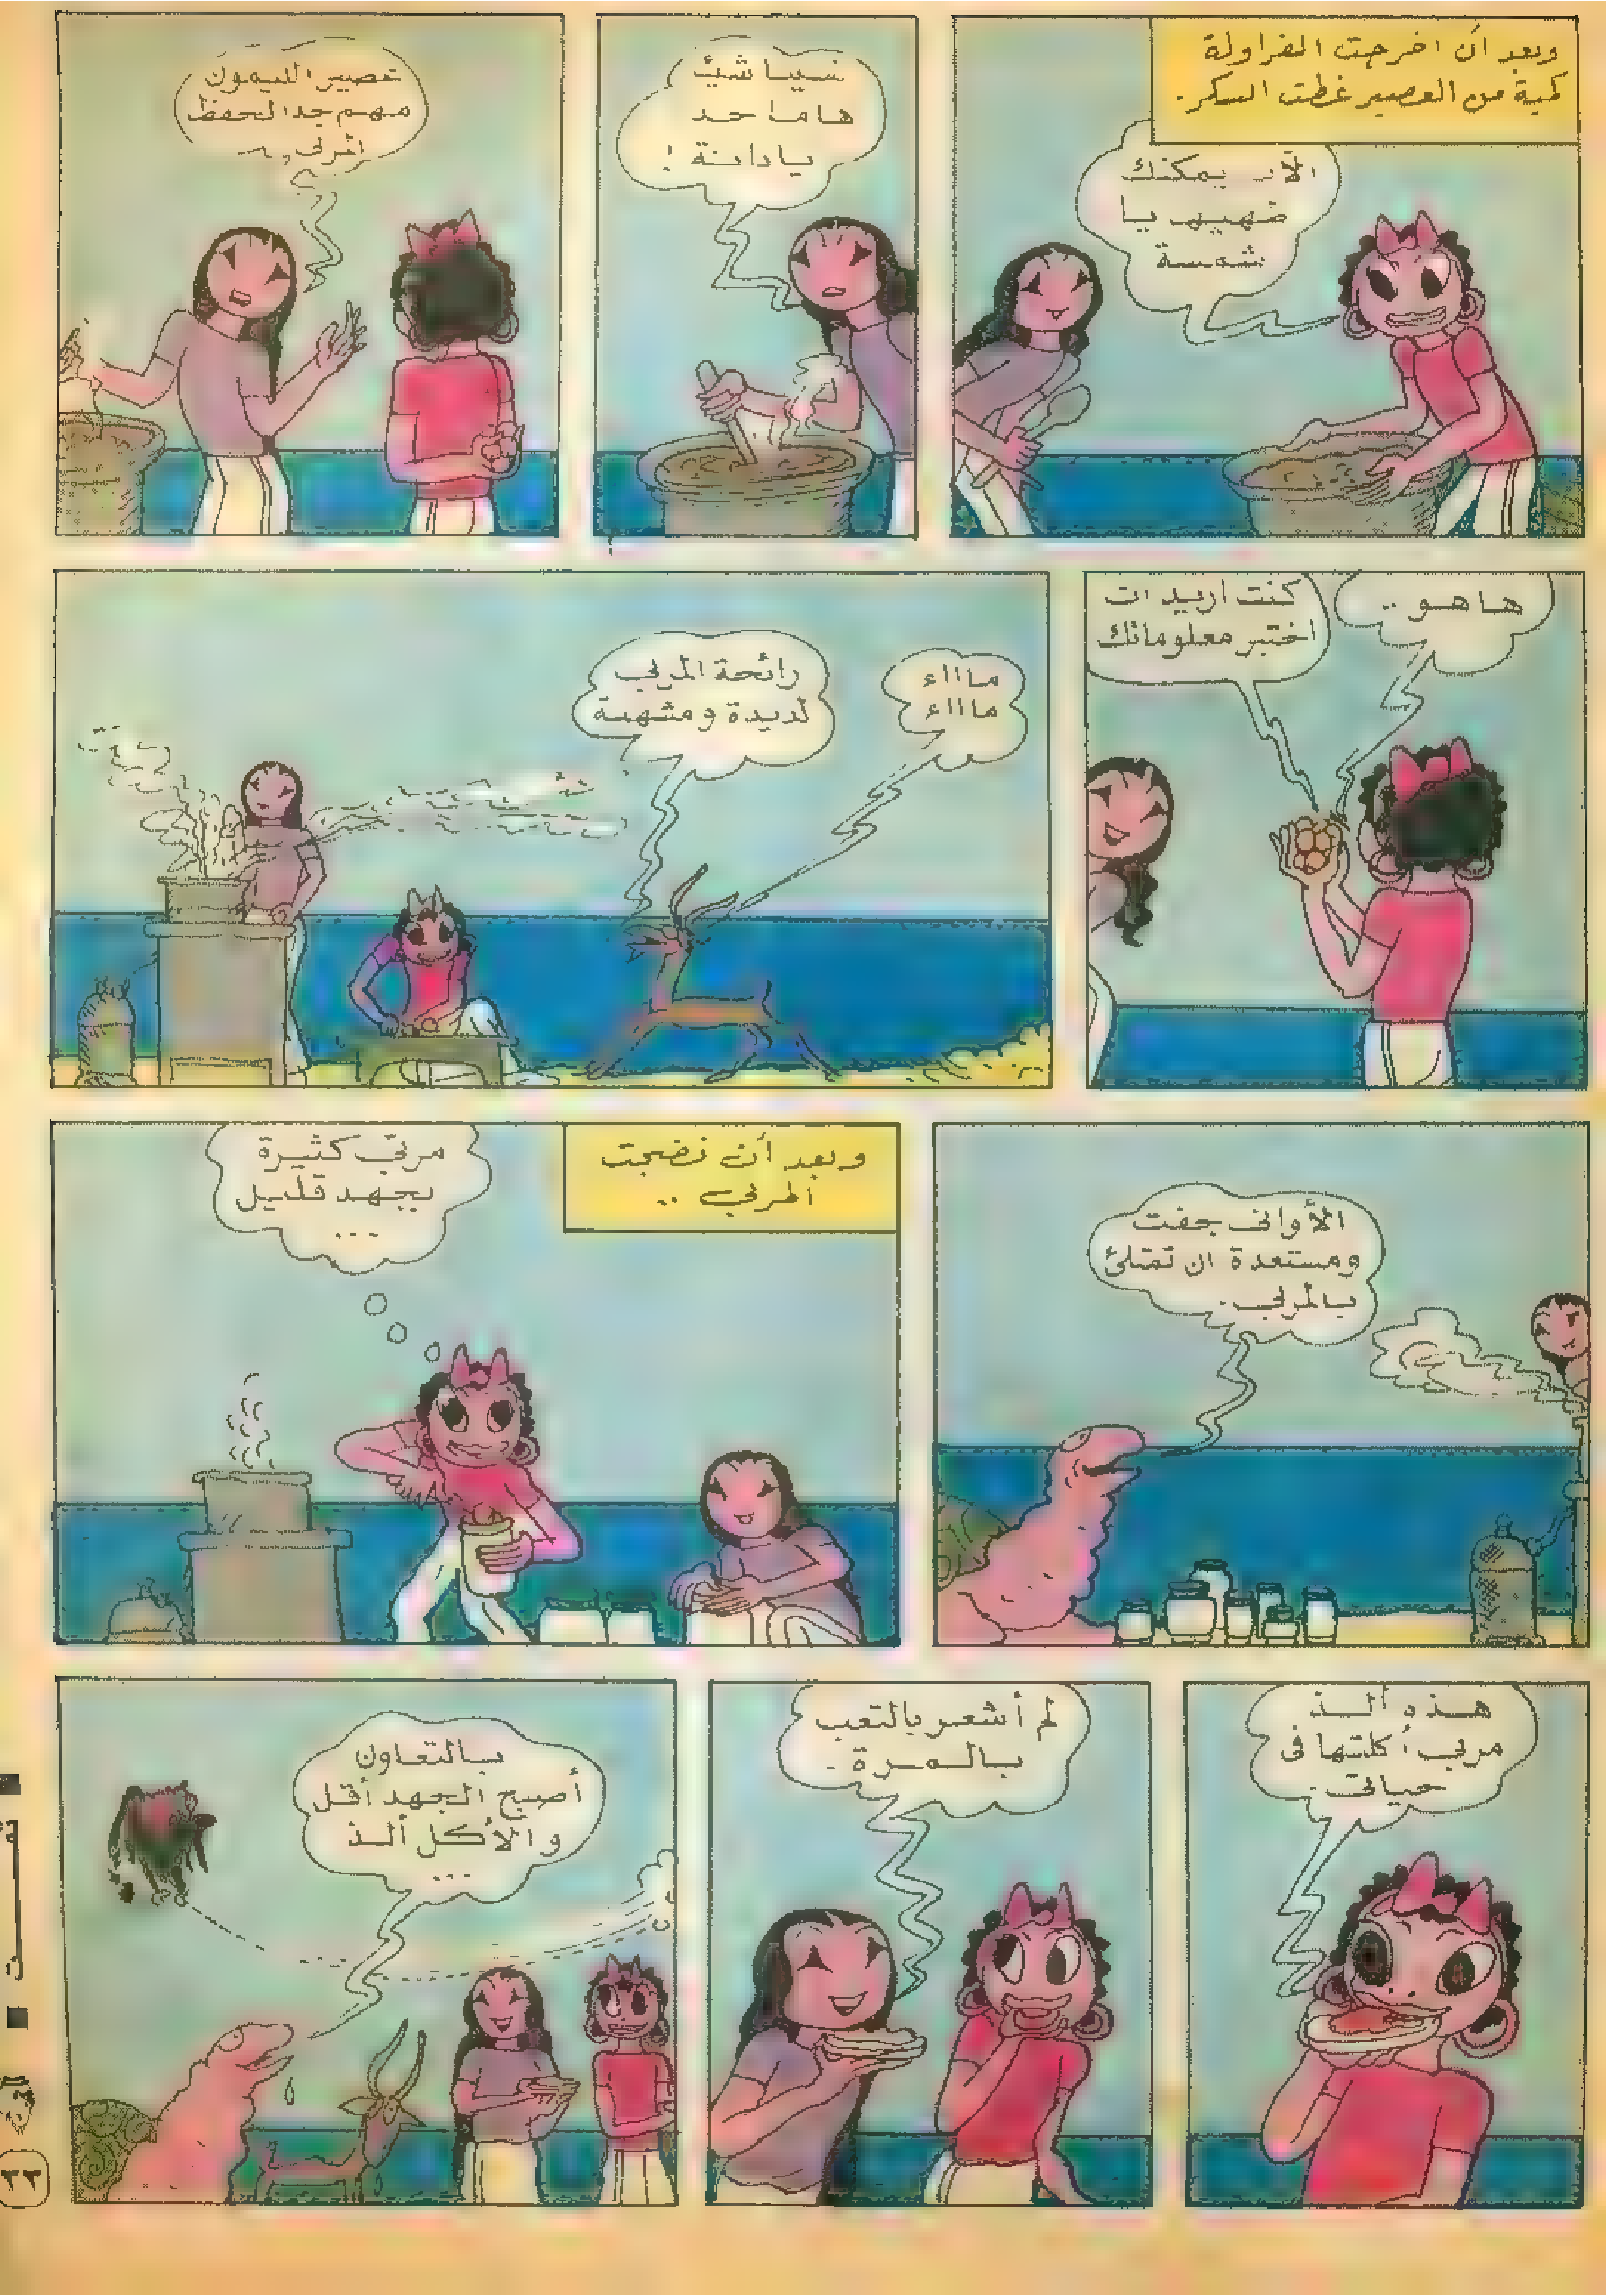 وبعد أن اخرجت الفراولة
كمية من العصير غطت السكر.
الآن يمكنك
يا
شمسة
نسينا شيئ
هاما جد
يا دانة !
عصير الليمون
مهم جدا لحفظ
المربى
ها هو ..
كنت اريد ان
اختبر معلوماتك
ماااء
ماااء
رائحة المربى
لذيذة ومشهية
الأوانى جفت
ومستعدة ان تمتلئ
بالمربى.
وبعد أن نضجت
المربى ..
مربى كثيرة
بجهد قليل
...
هذه ألذ
مربى أكلتها فى
حياتى.
لم أشعر بالتعب
بالمرة.
بالتعاون
أصبح الجهد أقل
والأكل ألذ
...
٣٢